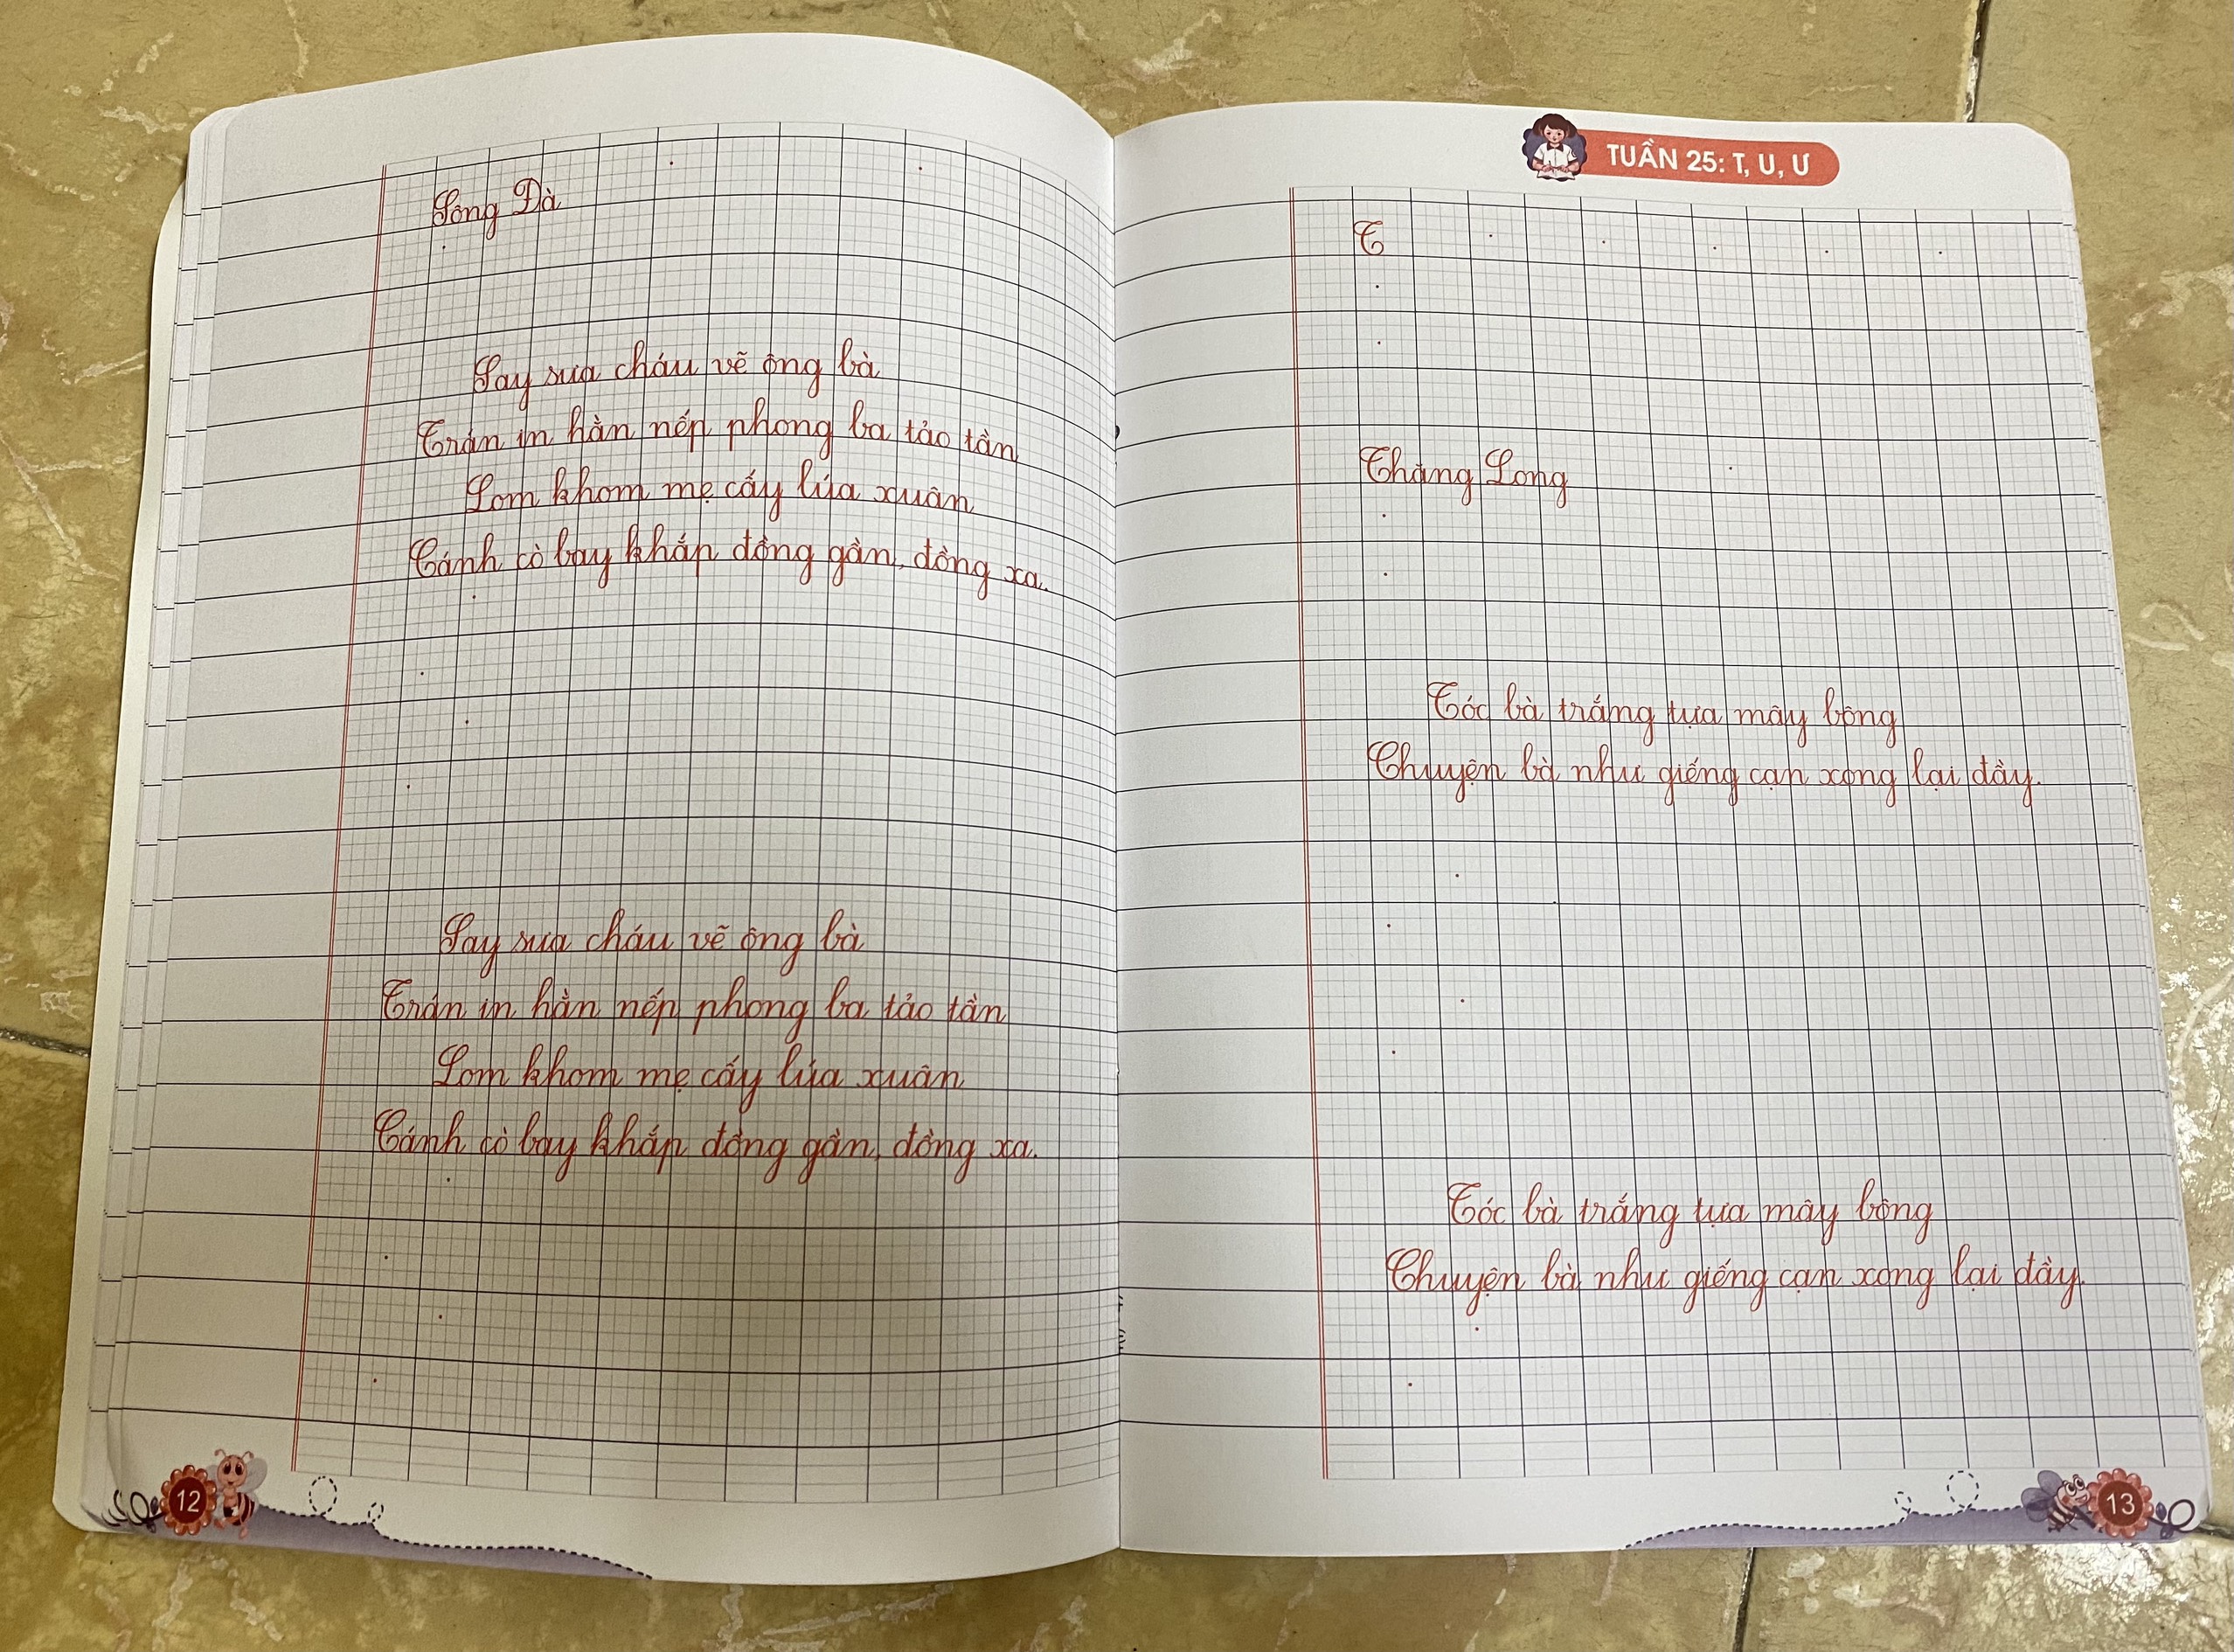 Sông Đà
Say sưa cháu vẽ ông bà
Trán in hằn nếp phong ba tảo tần
Lom khom mẹ cấy lúa xuân
Cánh cò bay khắp đồng gần, đồng xa.
Say sưa cháu vẽ ông bà
Trán in hằn nếp phong ba tảo tần
Lom khom mẹ cấy lúa xuân
Cánh cò bay khắp đồng gần, đồng xa.
12
TUẦN 25: T, U, Ư
T
Thăng Long
Tóc bà trắng tựa mây bông
Chuyện bà như giếng cạn xong lại đầy.
Tóc bà trắng tựa mây bông
Chuyện bà như giếng cạn xong lại đầy.
13